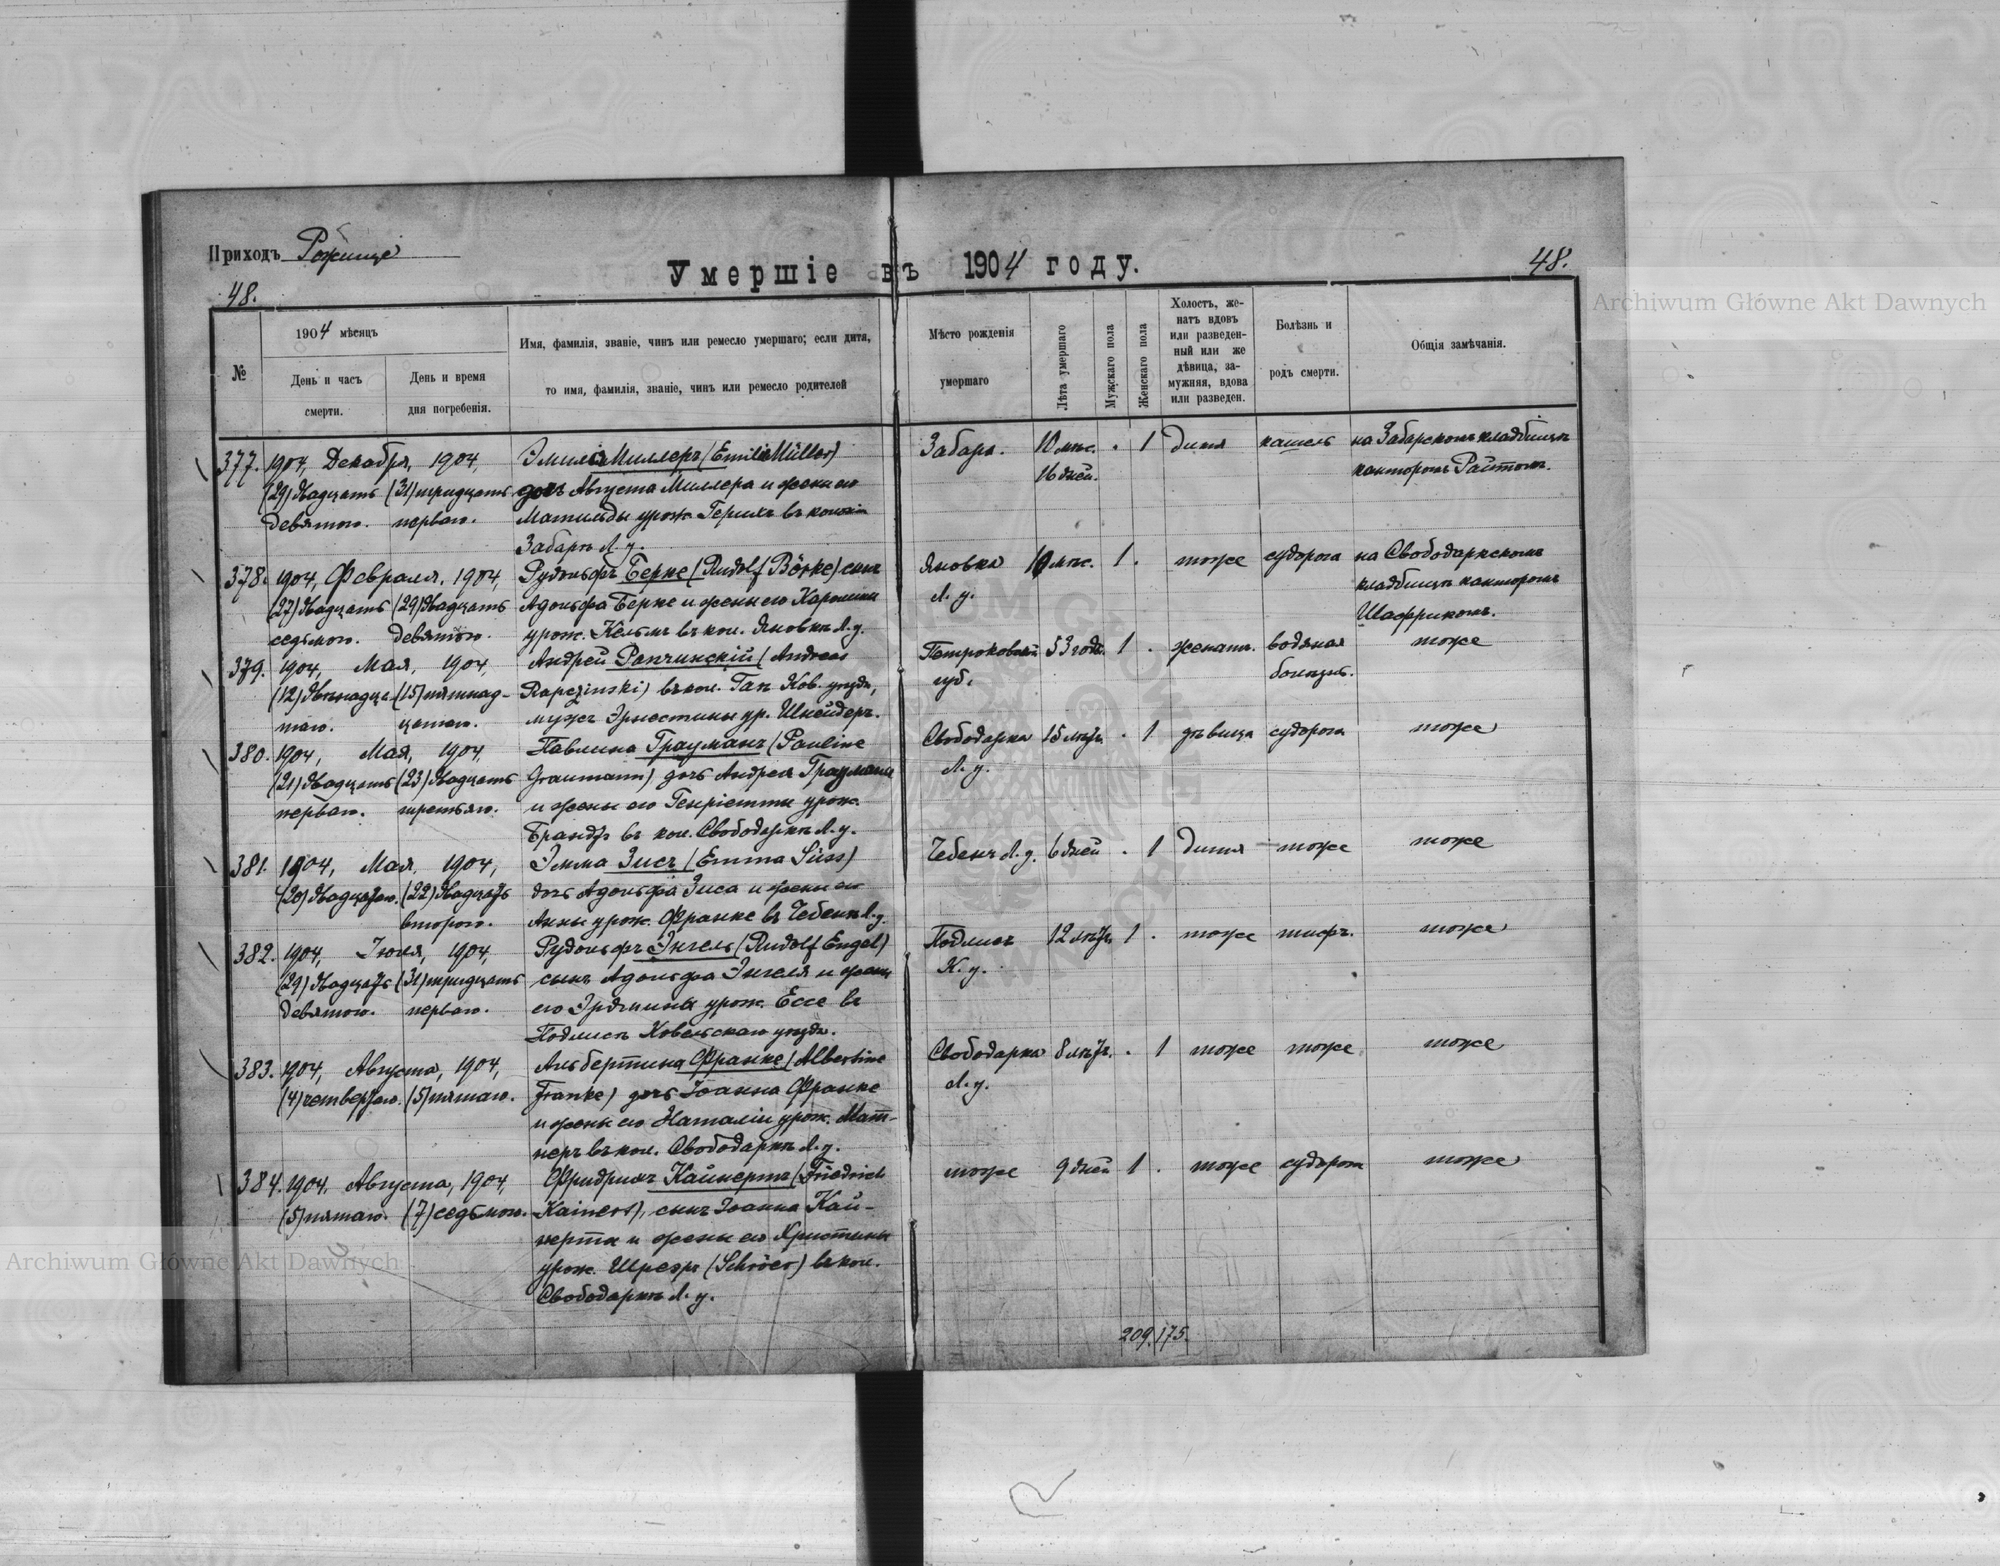 Приходъ Рожище
Умершіе въ 1904 году.
48.
48.
Archiwum Główne Akt Dawnych
№
1904 мѣсяцъ
День и часъ
смерти.
День и время
дня погребенія.
Имя, фамилія, званіе, чинъ или ремесло умершаго; если дитя,
то имя, фамилія, званіе, чинъ или ремесло родителей
Мѣсто рожденія
умершаго
Лѣта умершаго
Мужскаго пола
Женскаго пола
Холостъ, же-
натъ вдовъ
или разведен-
ный или же
дѣвица, за-
мужняя, вдова
или разведен.
Болѣзнь и
родъ смерти.
Общія замѣчанія.
377. 1904, Декабря, 1904, Эмилія Миллеръ (Emilie Müller) Забара. 10 мѣс. . 1 дитя кашель на Забарскомъ кладбищѣ
(29) двадцать (31) тридцать дочь Августа Миллера и жены его 16 дней. канторомъ Райтомъ.
девятого. перваго. Матильды урож. въ колоніи
Забаркѣ Л. у.
378. 1904, Февраля, 1904, Рудольфъ Берке (Rudolf Börke) сынъ Яновка 10 мѣс. 1 . тоже судорога на Свободаркскомъ
(27) двадцать (29) двадцать Адольфа Берке и жены его Каролины Л. у. кладбищѣ канторомъ
седьмого. девятого. урож. Кельмъ въ кол. Яновкѣ Л. у. Шаффрикомъ.
379. 1904, Мая, 1904, Андрей Рапчинскій (Andreas Петроковской 53 года. 1 . женатъ. водяная тоже
(12) двѣнадца- (15) пятнад- Rapczinski) въ кол. Ков. уѣзда, губ. болѣзнь.
таго. цатаго. мужъ Эрнестины ур. Шнейдеръ.
380. 1904, Мая, 1904, Павлина Грауманъ (Pauline Свободарка 15 лѣтъ. . 1 дѣвица судорога тоже
(21) двадцать (23) двадцать Graumann) дочь Андрея Граумана Л. у.
перваго. третьяго. и жены его Генріетты урож.
Брандтъ въ кол. Свободаркѣ Л. у.
381. 1904, Мая, 1904, Эмма Зисъ (Emma Süss) Чебень Л. у. 6 дней . 1 дитя тоже тоже
(20) двадцатого. (22) двадцать дочь Адольфа Зиса и жены его
второго. Анны урож. Франке въ Чебенѣ Л. у.
382. 1904, Іюля, 1904, Рудольфъ Энгель (Rudolf Engel) Подлисъ 12 лѣтъ. 1 . тоже тифъ. тоже
(29) двадцать (31) тридцать сынъ Адольфа Энгеля и жены К. у.
девятого. перваго. его урож. Ессе въ
Подлисѣ Ковельскаго уѣзда.
383. 1904, Августа, 1904, Альбертина Франке (Albertine Свободарка 8 лѣтъ. . 1 тоже тоже тоже
(4) четвертаго. (5) пятаго. Franke) дочь Іоанна Франке Л. у.
и жены его Наталіи урож. Мат-
неръ въ кол. Свободаркѣ Л. у.
384. 1904, Августа, 1904, Фридрихъ Кайнертъ (Friedrich тоже 9 дней 1 . тоже судорога тоже
(5) пятаго. (7) седьмого. Kainert), сынъ Іоанна Кай-
нерта и жены его Христины
урож. Шрееръ (Schröer) въ кол.
Свободаркѣ Л. у.
Archiwum Główne Akt Dawnych
209. 175.